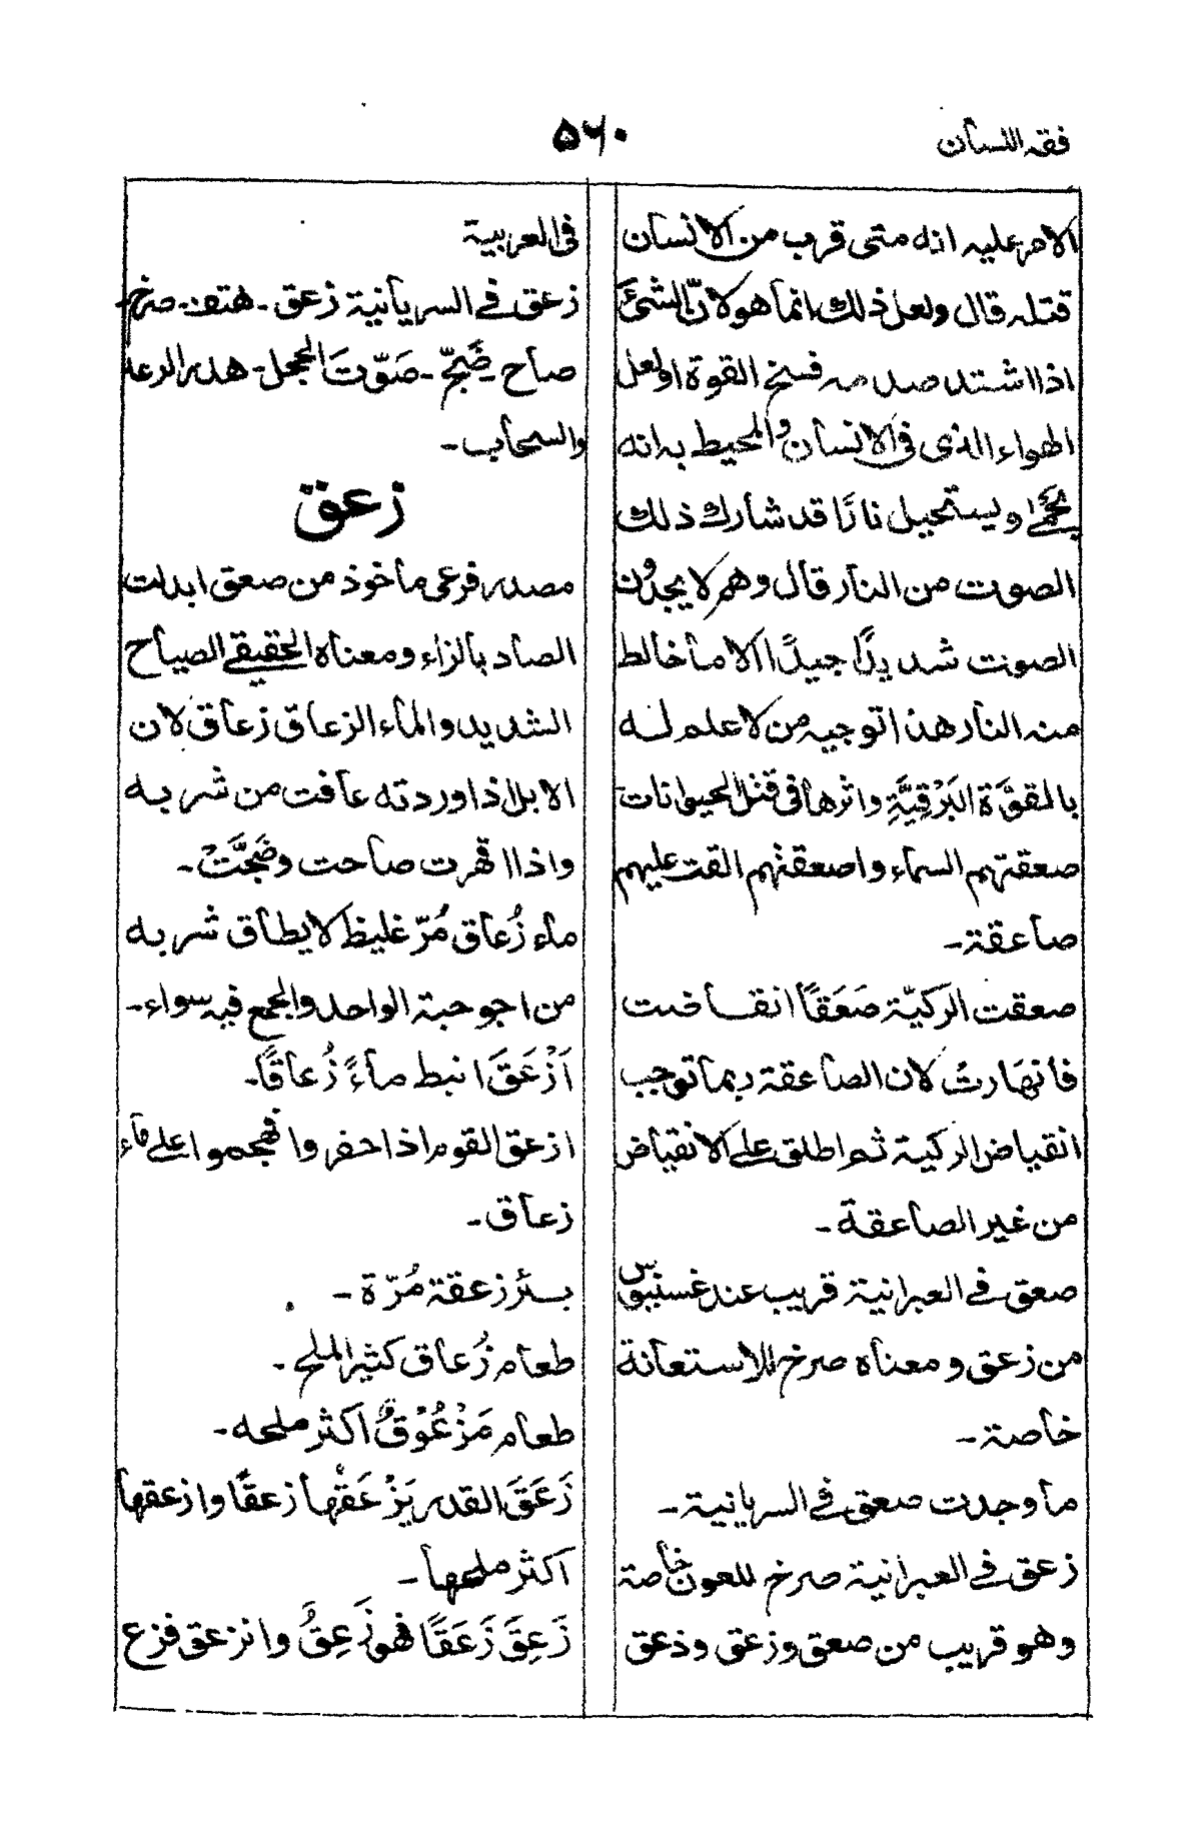 فقه اللسان
۵۶۰
الامر عليه انه متى قرب من الانسان
قتله قال ولعل ذلك انما هو لانّ الشئ
اذا اشتد صدمه فسخ القوة او لعل
الهواء الذى فى الانسان والمحيط به انه
يَحْمَى او يستحيل نارًا قد شارك ذلك
الصوت من النار قال وهم لا يجدون
الصوت شديدًا جيدًا الا ما خالط
منه النار هذا توجيه من لا علم له
بالمقوّة البَرْقِيَّةِ واثرها فى قتل الحيوانات
صعقتهم السماء واصعقتهم القت عليهم
صاعقة ـ
صعقت الركيّة صَعَقًا انقاضت
فانهارتْ لان الصاعقة ربما توجب
انقياض الركية ثم اطلق على الانقياض
من غير الصاعقة ـ
صعق فى العبرانية قريب عند غسنيوس
من زعق و معناه صرخ للاستعانة
خاصة ـ
ما وجدت صعق فى السريانية ـ
زعق فى العبرانية صرخ للعون خاصة
وهو قريب من صعق وزعق وذعق
فى العربية
زعق فى السريانية زعق ـ هتف ـ صرخ ـ
صاح ـ ضَجَّ ـ صَوّتَ العجل ـ هدر الرعد
والسحاب ـ
زعق
مصدر فرعى ماخوذ من صعق ابدلت
الصاد بالزاء ومعناه الحقيقى الصياح
الشديد والماء الزعاق زعاق لان
الابل اذا وردته عافت من شربه
واذا اقهرت صاحت وضَجَّتْ ـ
ماء زُعاق مُرّ غليظ لا يطاق شربه
من اجوجته الواحد والجمع فيه سواء ـ
اَزْعَقَ انبط ماءً زُعاقًا ـ
ازعق القوم اذا حفروا فهجموا على ماء
زعاق ـ
بئر زعقة مُرّة ـ
طعام زُعاق كثير الملح ـ
طعام مَزْعُوْقٌ اكثر ملحه ـ
زَعَقَ القدر يَزْعَقُها زعقًا وازعقها
اكثر ملحها ـ
زَعِقَ زَعَقًا فهو زَعِقٌ وانزعق فزع